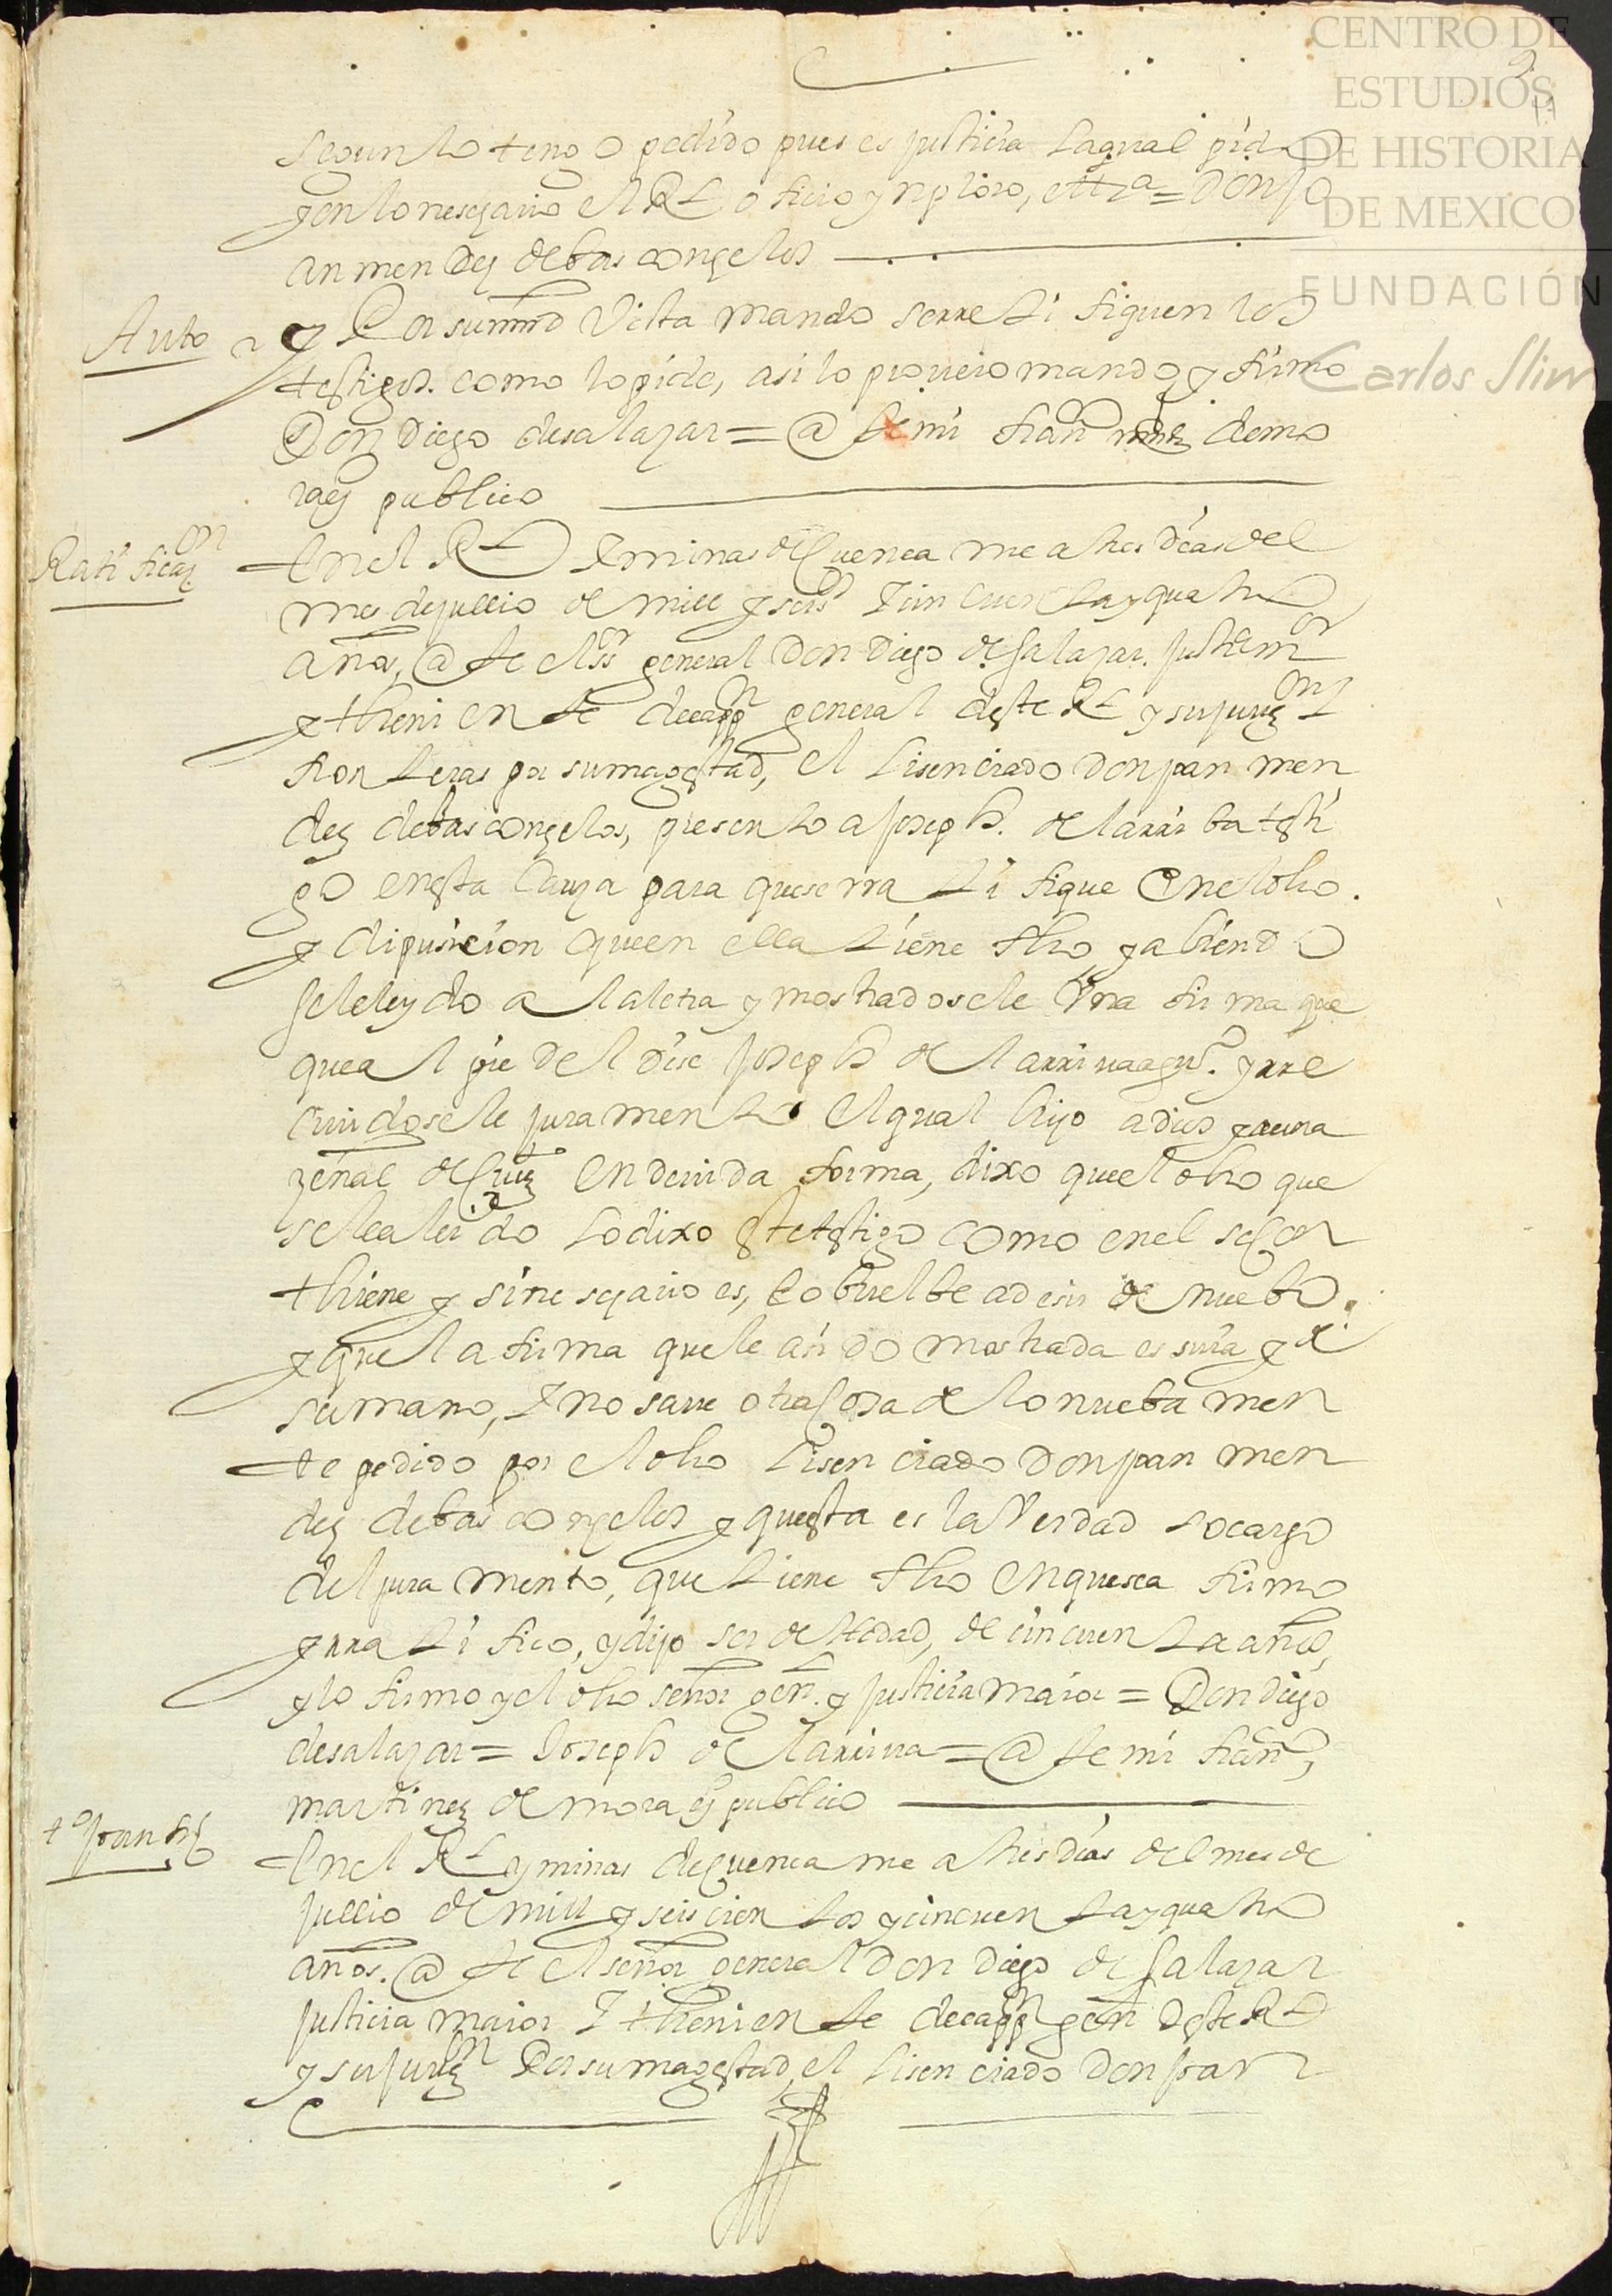 CENTRO DE
ESTUDIOS
DE HISTORIA
DE MEXICO
FUNDACIÓN
Carlos Slim
segun lo tengo pedido pues es justicia la qual pido
y en lo nesesario el Rl oficio ynploro, ettza = Don Ju
an mendez de basconzelos
Auto
Por su mrd Vista mando se rretifiquen los
testigos como lo pide, asi lo proveio mando y firmo
Don Diego de salazar = @ te mi fran mrnz de mo
ra es publico
Ratificaçon
En el Rl I minas de Cuenca me a tres dias del
mes de jullio de mill y seisos I cincuenta y quatro
años, @ te el Sr general Don Diego de Salazar justa mor
y theniente de cappn general deste Rl y su jurizon I
fronteras por su magestad, el Lisenciado Don juan men
dez de basconzelos, presento a joseph de larriba testi
go en esta Cauza para que se rratifique en el dho
y dipusicion que en ella tiene fho y abiendo
sele leydo a la letra y mostradosele Una firma que
que al pie del dise joseph de larrivaagur. y rre
civiosele juramento el qual hizo a dios y a una
zeñal de Cruz en devida forma, dixo que el dho que
se le a leido lo dixo este testigo como en el se con
thiene y si nesesario es, lo buelbe a desir de nuebo.
y que la firma que le a sido mostrada es suia y de
su mano, I no save otra Cosa de lo nuebamen
te pedido por el dho Lisenciado Don juan men
dez de basconzelos y questa es la Verdad so cargo
del juramento, que tiene fho en que se a firmo
y rratifico, y dijo ser de hedad, de cincuenta años,
y lo firmo y el dho señor genl. y justicia maior = Don diego
de salazar = Joseph de larriva = @ te mi franco,
martinez de mora es publico
to Juan
En el Rl y minas de Cuenca me a tres dias del mes de
jullio de mill y seiscientos y cincuenta y quatro
años. @ te el señor general Don Diego de Salazar
justicia maior I theniente de cappn genl deste Rl
y su jurizon Por su magestad, el Lisenciado Don Juan